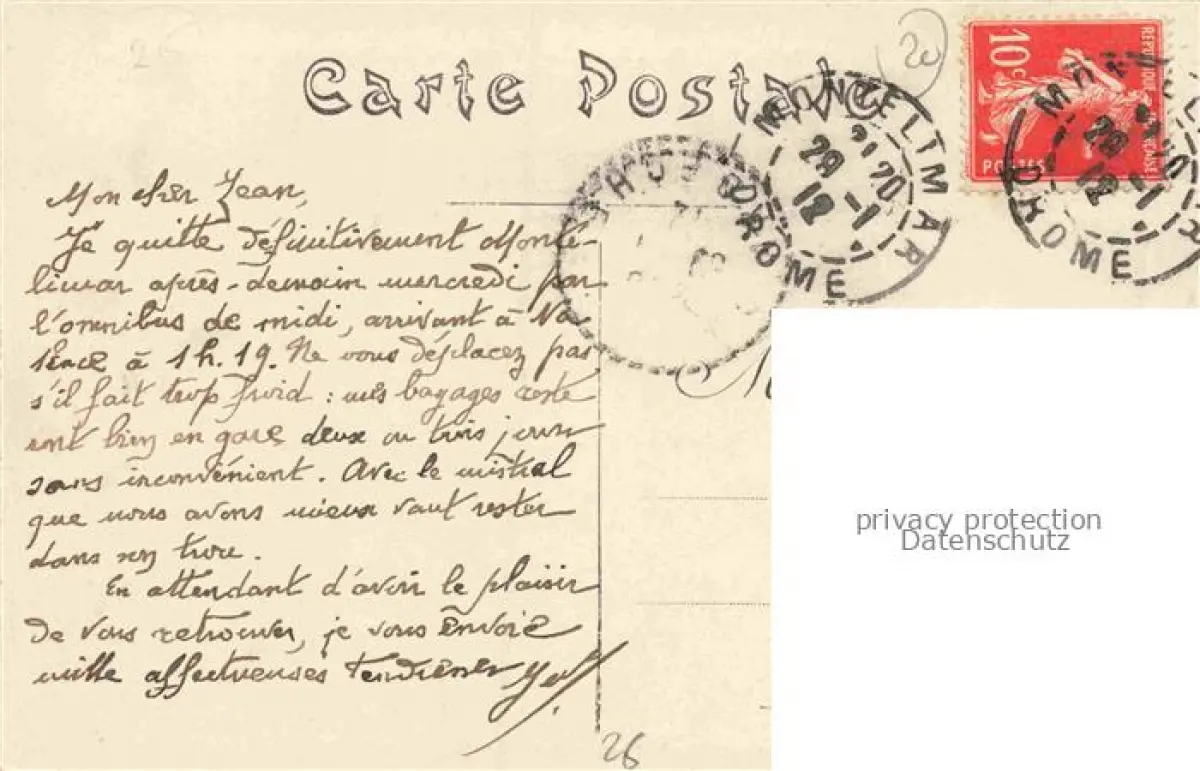 20
Carte Postale
10c
RÉPUBLIQUE FRANÇAISE
POSTES
MONTELTMAR
21 20
29 -1
12
DROME
29 -1
12
DROME
Mon cher Jean,
Je quitte définitivement Monté-
limar après-demain mercredi par
l'omnibus de midi, arrivant à Va-
lence à 1h.19. Ne vous déplacez pas
s'il fait trop froid : mes bagages reste
ront bien en gare deux ou trois jours
sans inconvénient. Avec le mistral
que nous avons mieux vaut rester
dans son trou.
En attendant d'avoir le plaisir
de vous retrouver, je vous envoie
mille affectueuses tendresses
26
privacy protection
Datenschutz